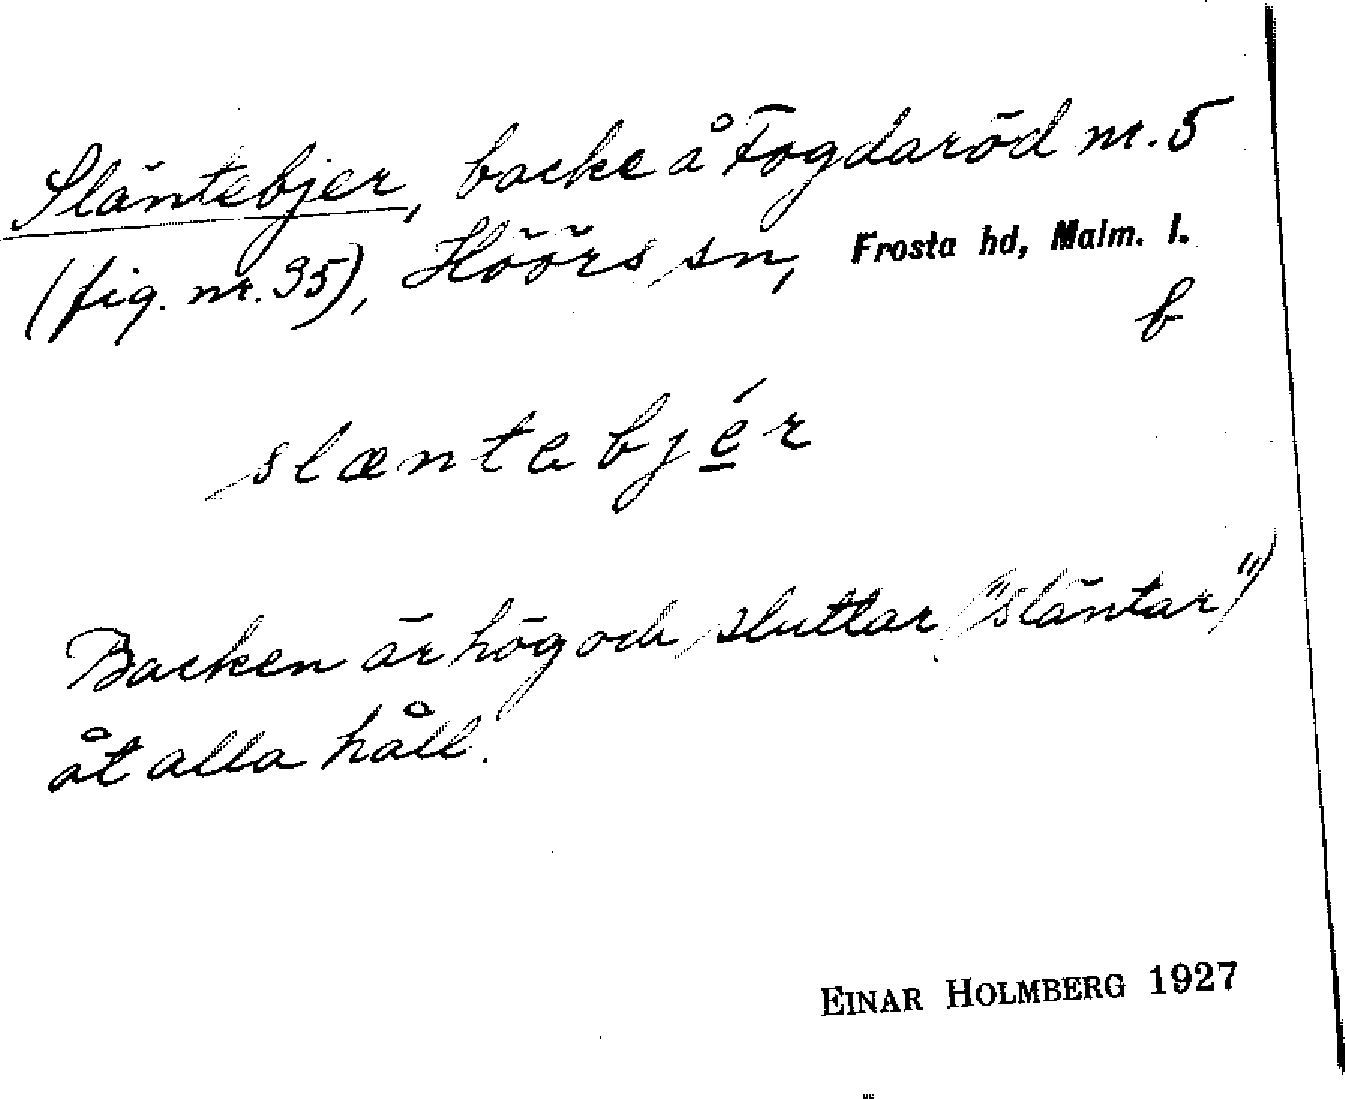 Släntebjer, backe å Fogdaröd nr. 5
(fig. nr. 35), Höörs sn, Frosta hd, Malm. l.
b
slæntebjér
Backen är hög och sluttar ("släntar")
åt alla håll.
EINAR HOLMBERG 1927